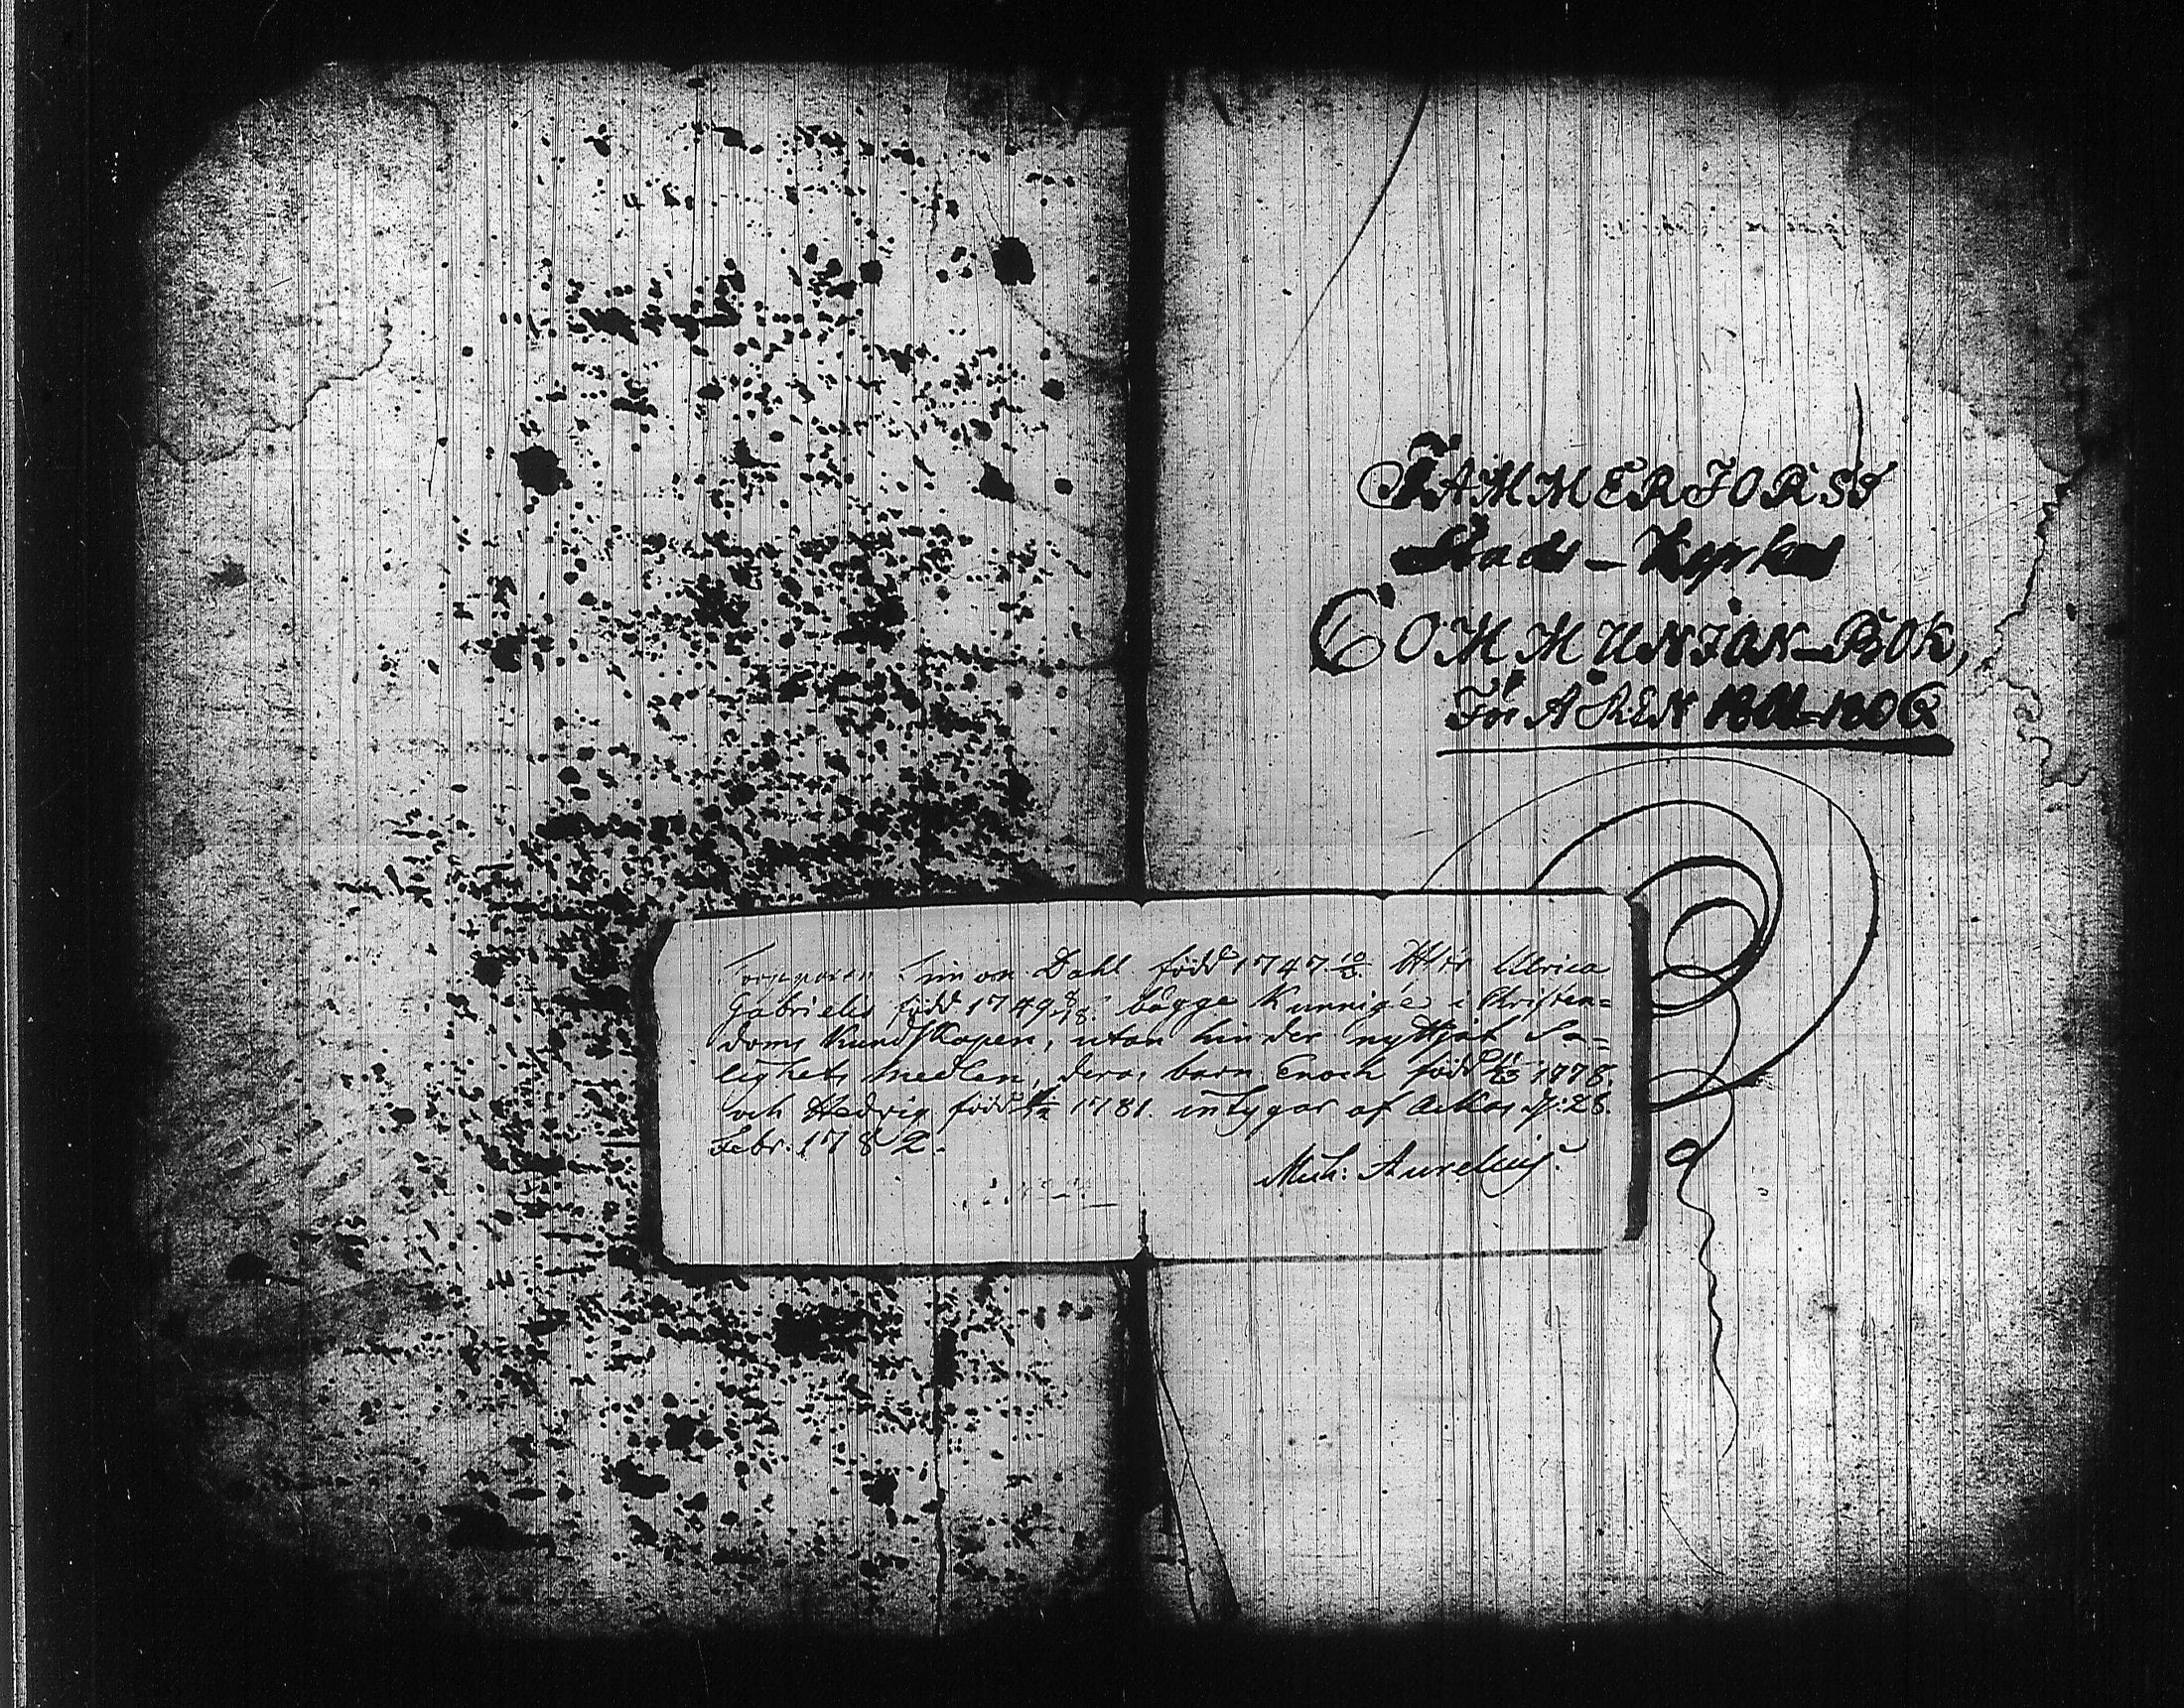 TAMMERFORSS
Stads-Kyrkas
COMMUNION-BOK,
För ÅREN 1801-1806
Simon Dahl född 1747 10/5. Ulrica
Gabrielsd. född 1749 bägge Kunnige i Christen=
doms Kundskapen, utan hinder nyttjat Sa=
lighets medlen, deras barn Enoch född 1778.
och Hedvig född 1781. intygar af Ackas d: 28.
Febr. 1782.
Mich: Aurelius.